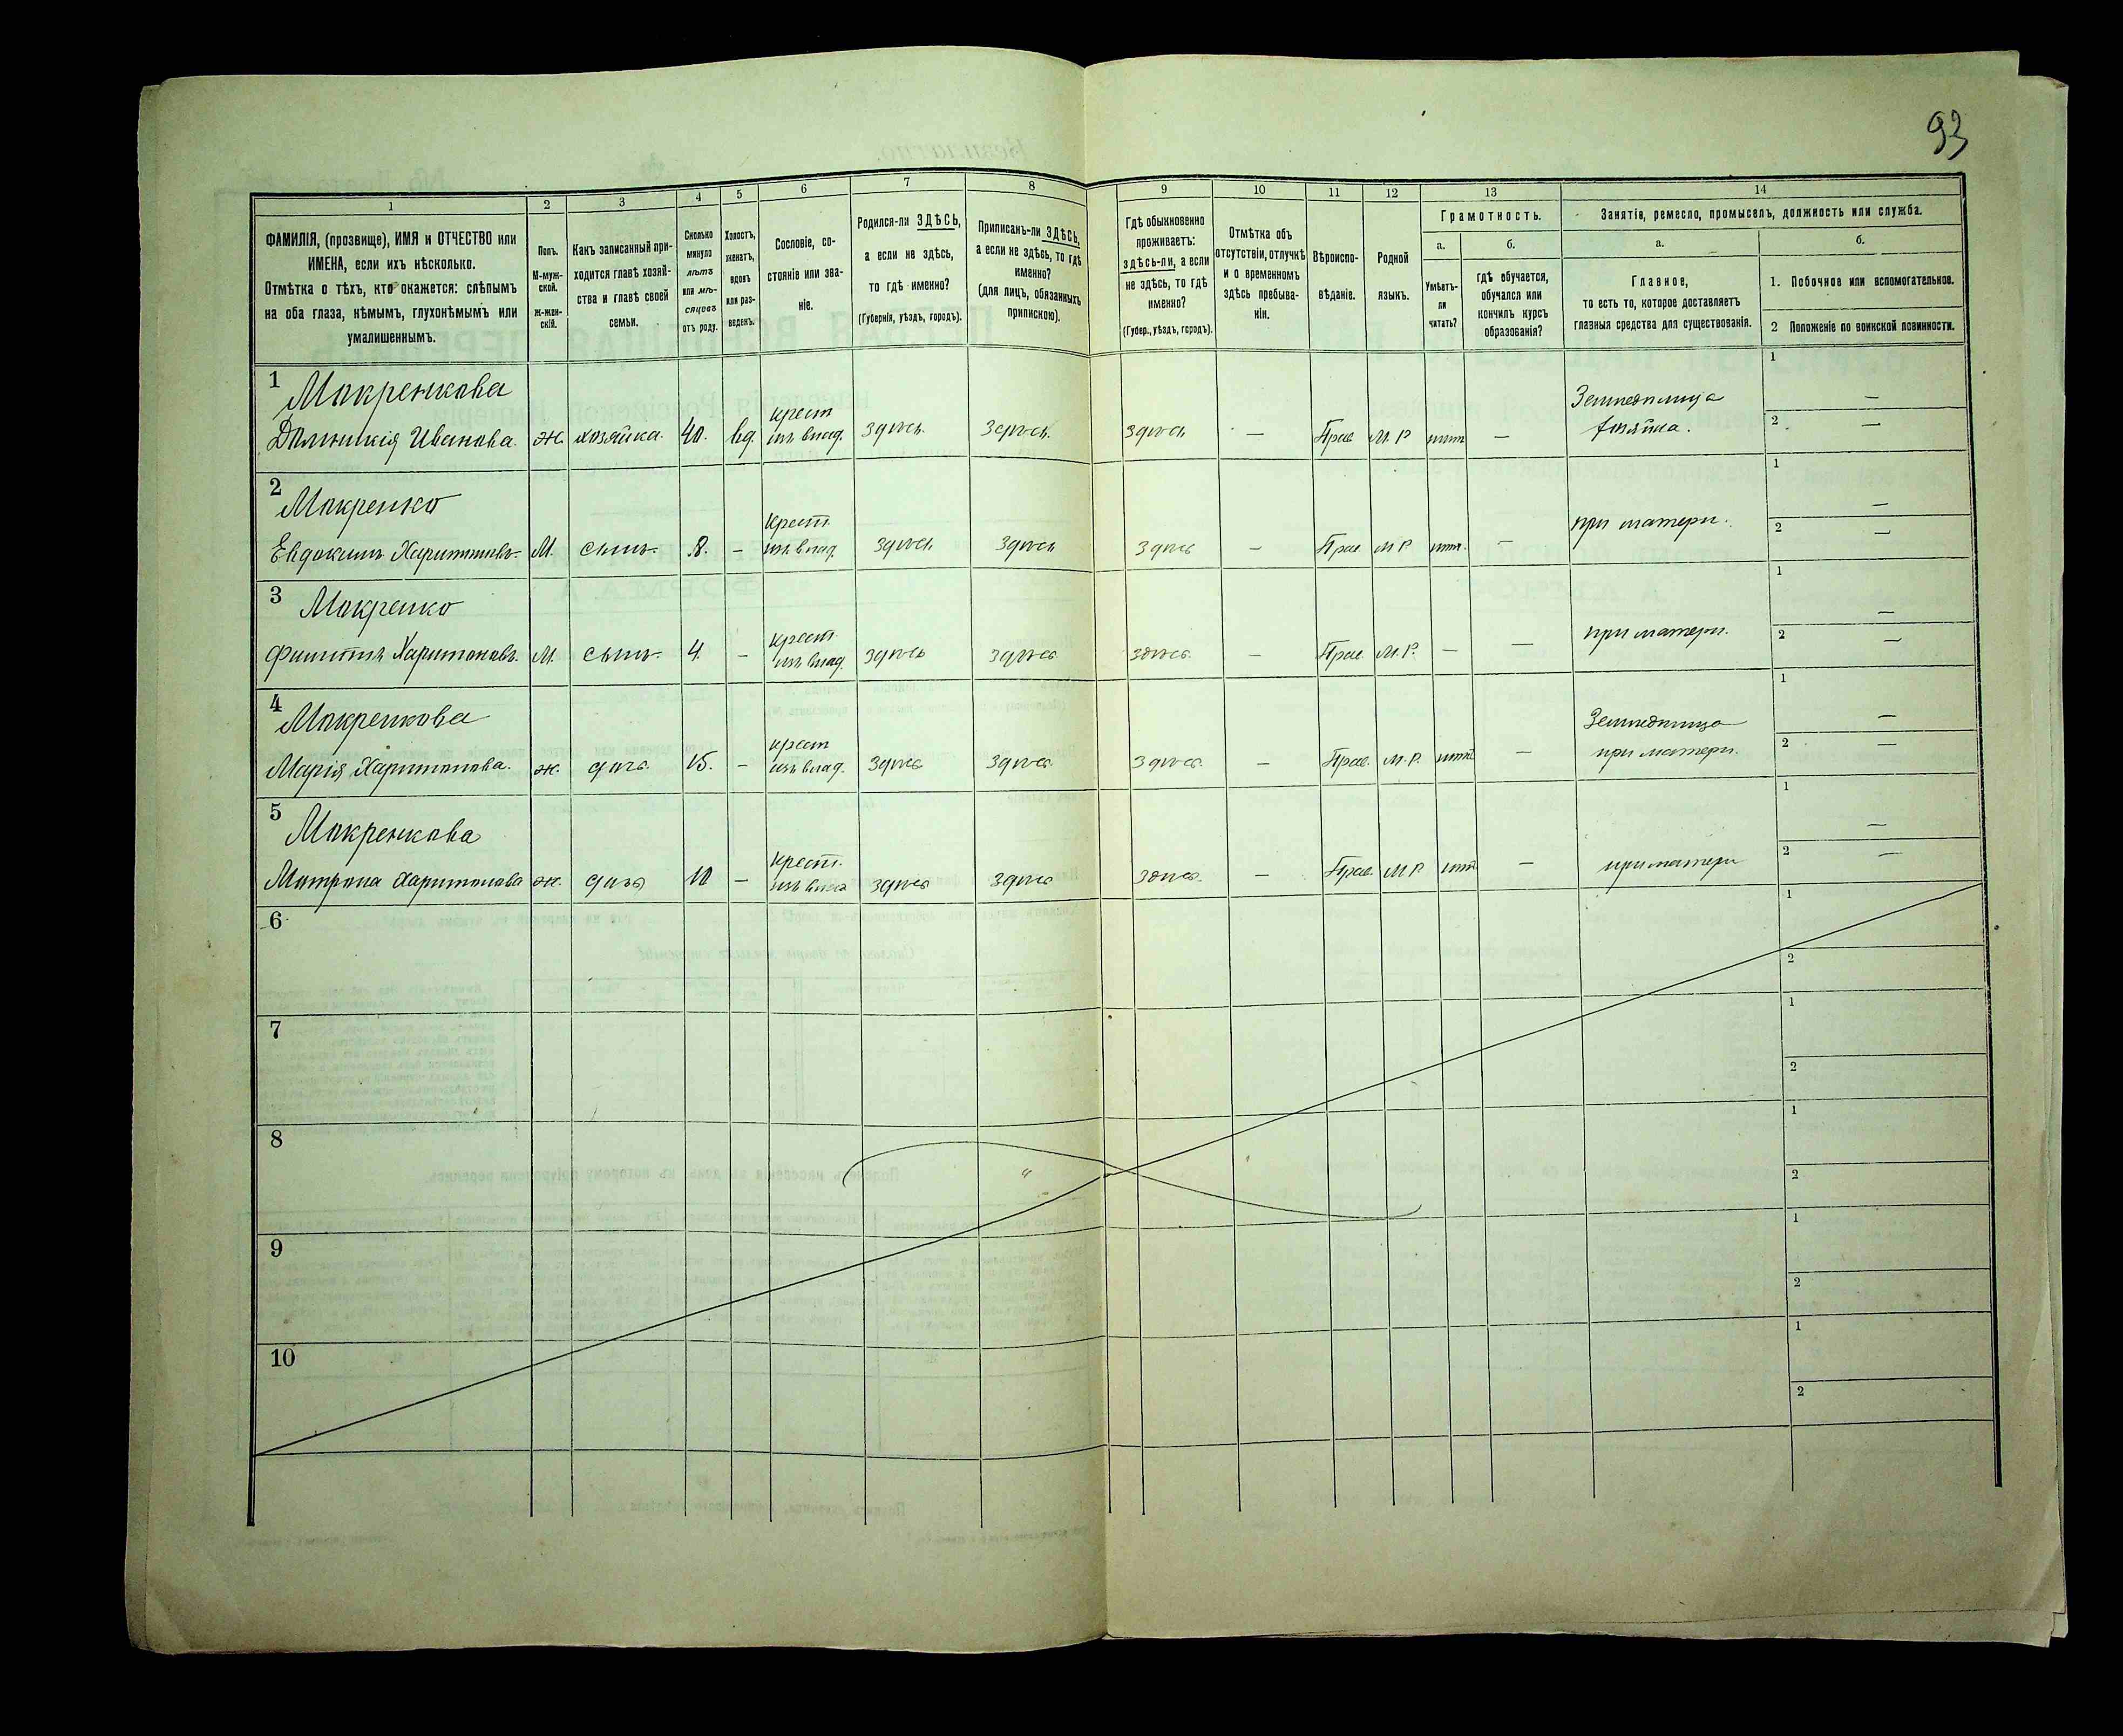 93
1 2 3 4 5 6 7 8 9 10 11 12 13 14
ФАМИЛІЯ, (прозвище), ИМЯ и ОТЧЕСТВО или
ИМЕНА, если ихъ нѣсколько.
Отмѣтка о тѣхъ, кто окажется: слѣпымъ
на оба глаза, нѣмымъ, глухонѣмымъ или
умалишеннымъ.
Полъ.
М-муж-
ской.
Ж-жен-
скій.
Какъ записанный при-
ходится главѣ хозяй-
ства и главѣ своей
семьи.
Сколько
минуло
лѣтъ
или мѣ-
сяцевъ
отъ роду.
Холостъ,
женатъ,
вдовъ
или раз-
веденъ.
Сословіе, со-
стояніе или зва-
ніе.
Родился-ли ЗДѢСЬ,
а если не здѣсь,
то гдѣ именно?
(Губернія, уѣздъ, городъ).
Приписанъ-ли ЗДѢСЬ,
а если не здѣсь, то гдѣ
именно?
(для лицъ, обязанныхъ
припискою).
Гдѣ обыкновенно
проживаетъ:
здѣсь-ли, а если
не здѣсь, то гдѣ
именно?
(Губер., уѣздъ, городъ).
Отмѣтка объ
отсутствіи, отлучкѣ
и о временномъ
здѣсь пребыва-
ніи.
Вѣроиспо-
вѣданіе.
Родной
языкъ.
Грамотность.
а.
Умѣетъ-
ли
читать?
б.
Гдѣ обучается,
обучался или
кончилъ курсъ
образованія?
Занятіе, ремесло, промыселъ, должность или служба.
а.
Главное,
то есть то, которое доставляетъ
главныя средства для существованія.
б.
1. Побочное или вспомогательное.
2 Положеніе по воинской повинности.
1 Мокренкова крест Земледѣлица 1 —
Иванова. ж. хозяйка. 40. вд. изъ влад. здѣсь. Здѣсь. здѣсь — Прав. М. Р нѣтъ — хозяйка. 2 —
2 Мокренко Крест. 1 —
Евдокимъ Харитоновъ. М. сынъ. 8. — изъ влад. здѣсь здѣсь здѣсь — Прав. М Р. нѣтъ. — при матери. 2 —
3 Мокренко крест. 1 —
Филиппъ Харитоновъ. М. сынъ. 4. — изъ влад. здѣсь здѣсь здѣсь. — Прав. М. Р. — — при матери. 2 —
4 Мокренкова крест Земледѣлица 1 —
Марія Харитонова. ж. дочь. 15. — изъ влад. здѣсь здѣсь здѣсь. — Прав. М. Р. нѣтъ — при матери. 2 —
5 Мокренкова крест. 1 —
Матрона Харитонова ж. дочь 10 — изъ влад здѣсь здѣсь здѣсь. — Прав. М Р нѣтъ — при матери 2 —
6 1
2
7 1
2
8 1
2
9 1
2
10 1
2